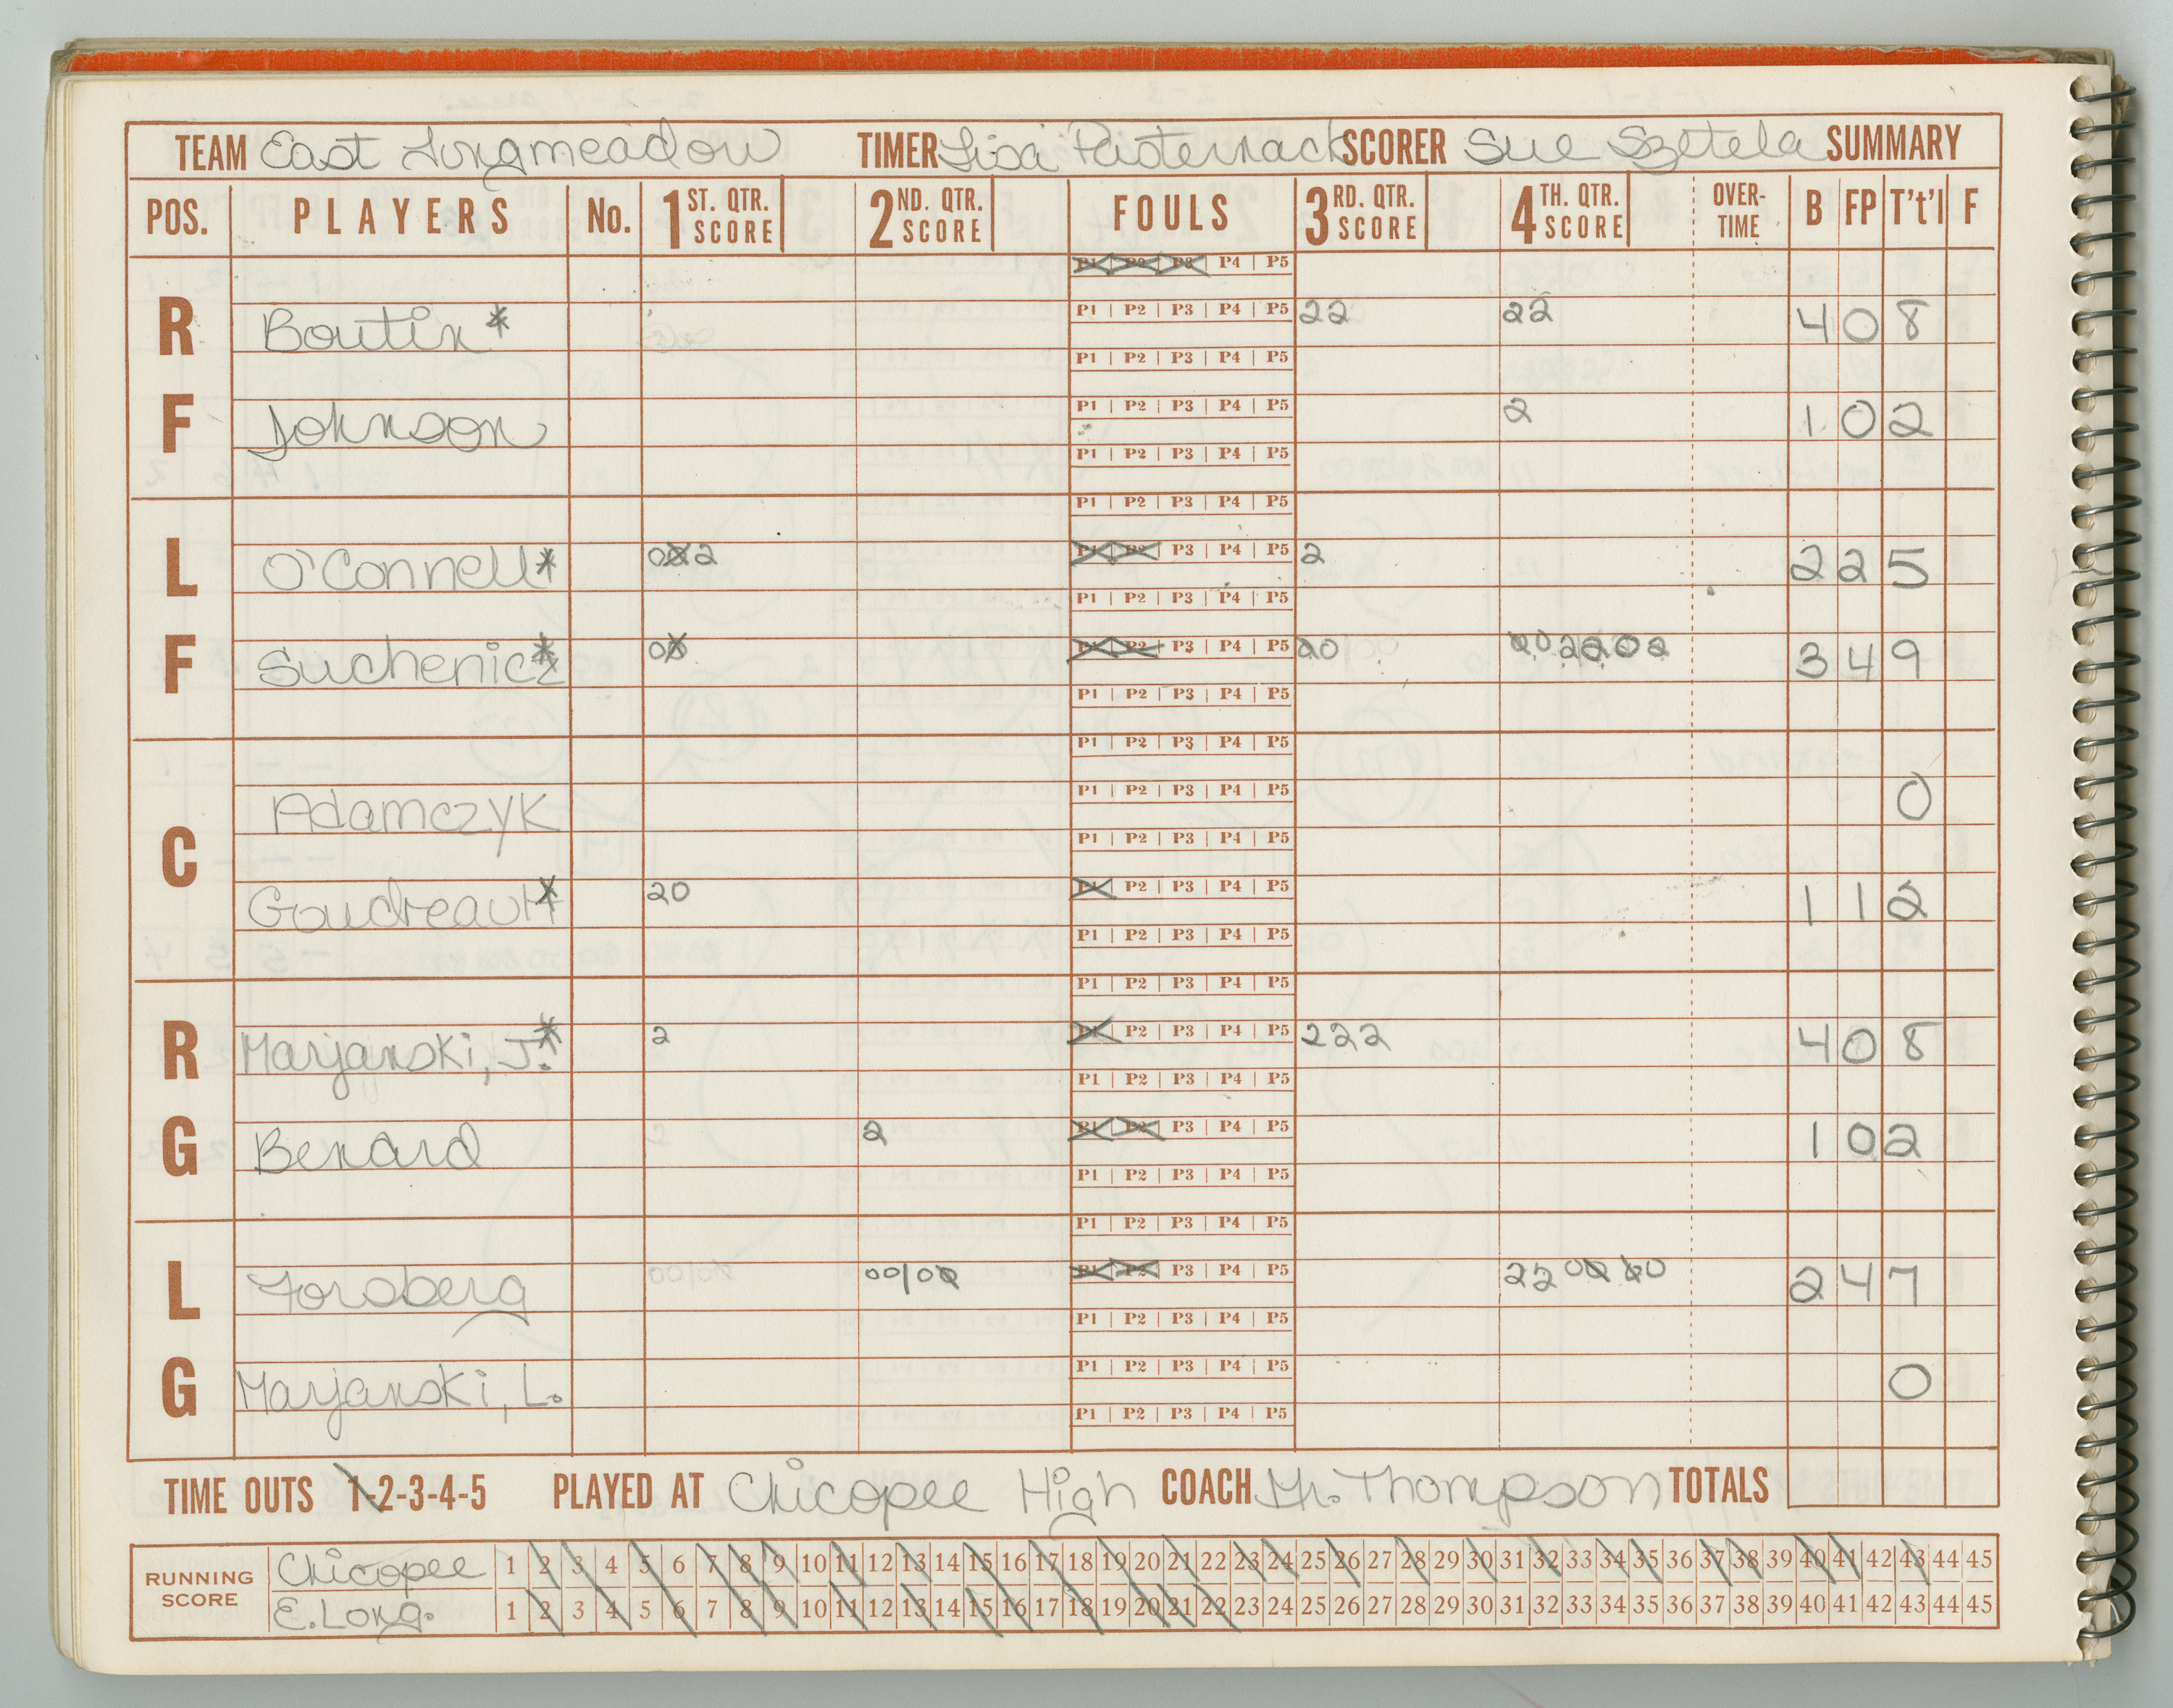 TEAM East Longmeadow TIMER Lisa Pasternack SCORER Sue Szetela SUMMARY
POS. PLAYERS No. 1ST. QTR. SCORE 2ND. QTR. SCORE FOULS 3RD. QTR. SCORE 4TH. QTR. SCORE OVER-TIME B FP T't'l F
P1 P2 P3 P4 P5
R Boutin * P1 P2 P3 P4 P5 22 22 4 0 8
P1 P2 P3 P4 P5
F Johnson P1 P2 P3 P4 P5 2 1 0 2
P1 P2 P3 P4 P5
P1 P2 P3 P4 P5
L O'Connell * 00 2 P1 P2 P3 P4 P5 2 2 2 5
P1 P2 P3 P4 P5
F Suchenicz * 00 P1 P2 P3 P4 P5 20 3 4 9
P1 P2 P3 P4 P5
P1 P2 P3 P4 P5
Adamczyk P1 P2 P3 P4 P5 0
C P1 P2 P3 P4 P5
Goudreault * 20 P1 P2 P3 P4 P5 1 1 2
P1 P2 P3 P4 P5
P1 P2 P3 P4 P5
R Marjanski, J. * 2 P1 P2 P3 P4 P5 222 4 0 8
P1 P2 P3 P4 P5
G Benard 2 P1 P2 P3 P4 P5 1 0 2
P1 P2 P3 P4 P5
P1 P2 P3 P4 P5
L Forsberg 00/00 P1 P2 P3 P4 P5 22 00 00 2 4 7
P1 P2 P3 P4 P5
G Marjanski, L. P1 P2 P3 P4 P5 0
P1 P2 P3 P4 P5
TIME OUTS 1-2-3-4-5 PLAYED AT Chicopee High COACH Mr. Thompson TOTALS
RUNNING SCORE
Chicopee 1 2 3 4 5 6 7 8 9 10 11 12 13 14 15 16 17 18 19 20 21 22 23 24 25 26 27 28 29 30 31 32 33 34 35 36 37 38 39 40 41 42 43 44 45
E. Long. 1 2 3 4 5 6 7 8 9 10 11 12 13 14 15 16 17 18 19 20 21 22 23 24 25 26 27 28 29 30 31 32 33 34 35 36 37 38 39 40 41 42 43 44 45